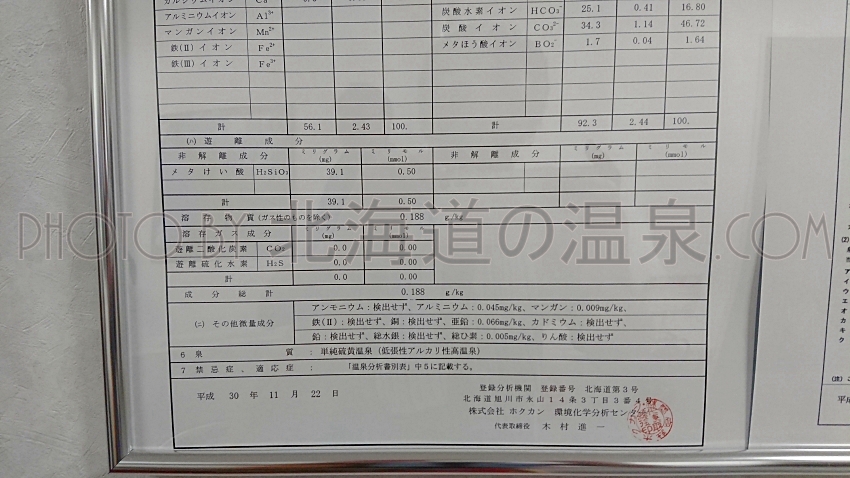 アルミニウムイオン Al³⁺
炭酸水素イオン HCO₃⁻ 25.1 0.41 16.80
マンガンイオン Mn²⁺
炭酸イオン CO₃²⁻ 34.3 1.14 46.72
鉄(Ⅱ)イオン Fe²⁺
メタほう酸イオン BO₂⁻ 1.7 0.04 1.64
鉄(Ⅲ)イオン Fe³⁺
計 56.1 2.43 100. 計 92.3 2.44 100.
(ハ) 遊離成分
非解離成分 ミリグラム(mg) ミリモル(mmol) 非解離成分 ミリグラム(mg) ミリモル(mmol)
メタけい酸 H₂SiO₃ 39.1 0.50
計 39.1 0.50
溶存物質(ガス性のものを除く) 0.188 g/kg
溶存ガス成分 ミリグラム(mg) ミリモル(mmol)
遊離二酸化炭素 CO₂ 0.0 0.00
遊離硫化水素 H₂S 0.0 0.00
計 0.0 0.00
成分総計 0.188 g/kg
(ニ) その他微量成分
アンモニウム：検出せず、アルミニウム：0.045mg/kg、マンガン：0.009mg/kg、
鉄(Ⅱ)：検出せず、銅：検出せず、亜鉛：0.066mg/kg、カドミウム：検出せず、
鉛：検出せず、総水銀：検出せず、総ひ素：0.005mg/kg、りん酸：検出せず
6 泉質：単純硫黄温泉（低張性アルカリ性高温泉）
7 禁忌症、適応症：「温泉分析書別表」中5に記載する。
平成 30 年 11 月 22 日
登録分析機関 登録番号 北海道第3号
北海道旭川市永山14条3丁目3番4号
株式会社 ホクカン 環境化学分析センター
代表取締役 木村進一
PHOTO BY 北海道の温泉.COM
(2)
ア
イ
ウ
エ
オ
カ
キ
ク
(注)
平成